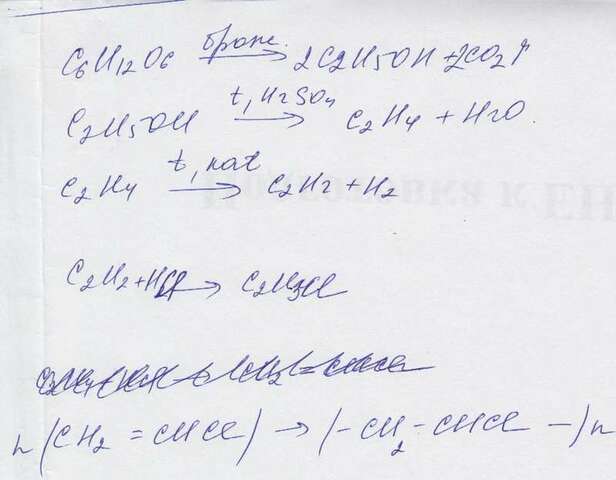 C6H12O6 брож. → 2C2H5OH + 2CO2↑
C2H5OH t, H2SO4 → C2H4 + H2O.
C2H4 t, kat → C2H2 + H2
C2H2 + HCl → C2H3Cl
n(CH2 = CHCl) → (-CH2 - CHCl -)n